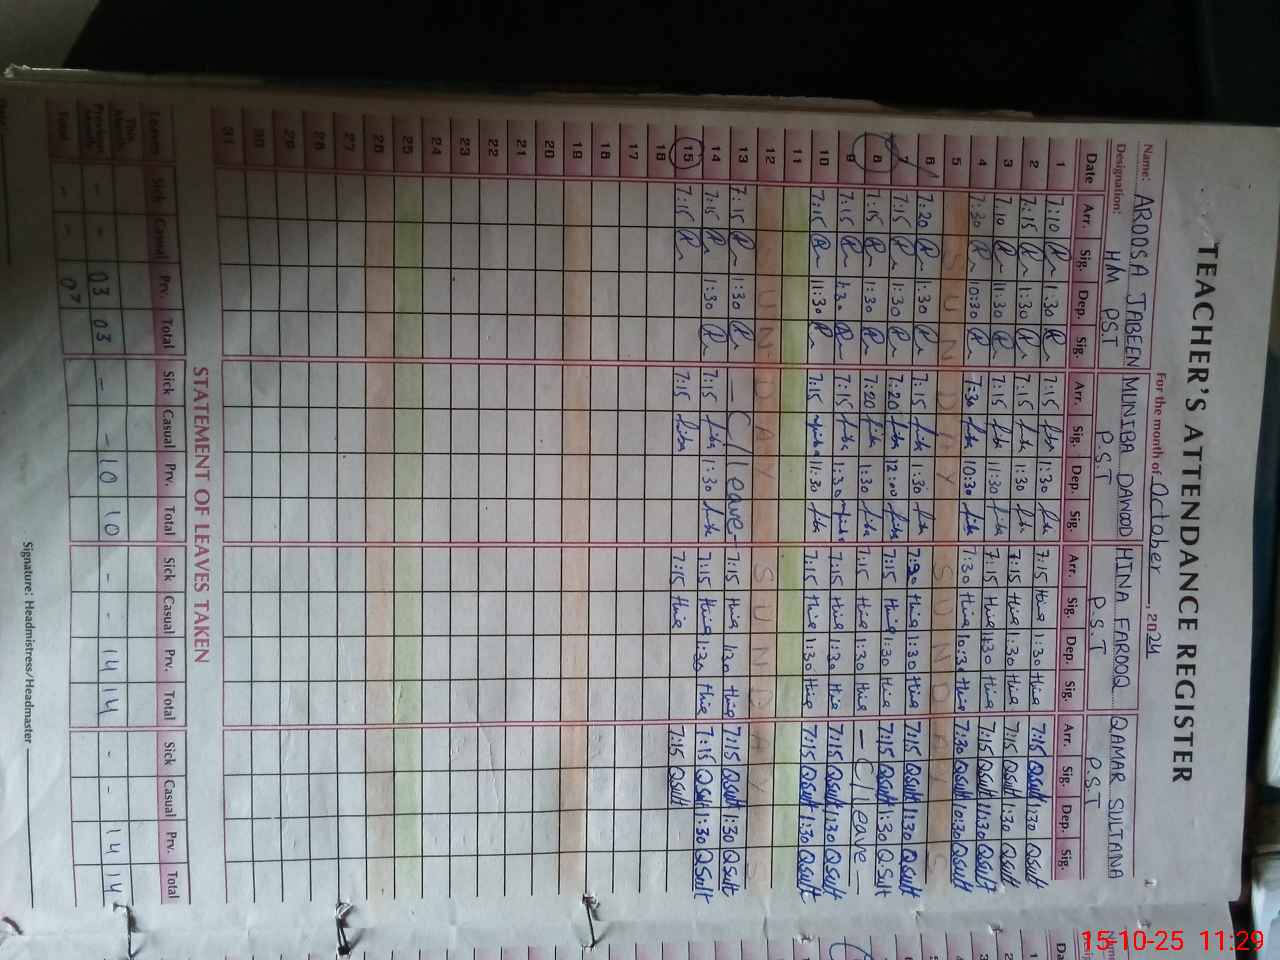 TEACHER'S ATTENDANCE REGISTER
For the month of October, 2024
Name: AROOSA JABEEN MUNIBA DAWOOD HINA FAROOQ QAMAR SULTANA
Designation: H/M PST P.S.T P.S.T P.S.T
Date Arr. Sig. Dep. Sig. Arr. Sig. Dep. Sig. Arr. Sig. Dep. Sig. Arr. Sig. Dep. Sig.
1 7:10 1:30 7:15 1:30 7:15 Hina 1:30 Hina 7:15 QSult 1:30 QSult
2 7:15 1:30 7:15 1:30 7:15 Hina 1:30 Hina 7:15 QSult 1:30 QSult
3 7:10 11:30 7:15 11:30 7:15 Hina 11:30 Hina 7:15 QSult 11:30 QSult
4 7:30 10:30 7:30 10:30 7:30 Hina 10:30 Hina 7:30 QSult 10:30 QSult
5 SUNDAY SUNDAYS
6 7:20 1:30 7:15 1:30 7:30 Hina 1:30 Hina 7:15 QSult 1:30 QSult
7 7:15 1:30 7:20 12:00 7:15 Hina 1:30 Hina 7:15 QSult 1:30 Q.Sult
8 7:15 1:30 7:20 1:30 7:15 Hina 1:30 Hina – C/leave –
9 7:15 1:30 7:15 1:30 7:15 Hina 1:30 Hina 7:15 QSult 1:30 QSult
10 7:15 11:30 7:15 11:30 7:15 Hina 11:30 Hina 7:15 QSult 11:30 QSult
11
12 SUNDAY SUNDAYS
13 7:15 1:30 – C/leave – 7:15 Hina 1:30 Hina 7:15 QSult 1:30 QSult
14 7:15 1:30 7:15 1:30 7:15 Hina 1:30 Hina 7:15 QSult 1:30 QSult
15 7:15 7:15 7:15 Hina 7:15 QSult
16
17
18
19
20
21
22
23
24
25
26
27
28
29
30
31
STATEMENT OF LEAVES TAKEN
Leaves Sick Casual Prv. Total Sick Casual Prv. Total Sick Casual Prv. Total Sick Casual Prv. Total
This Month
Previous - - 03 03 - - 10 10 - - 14 14 - - 14 14
Total - - 07
Signature: Headmistress/Headmaster
15-10-25 11:29